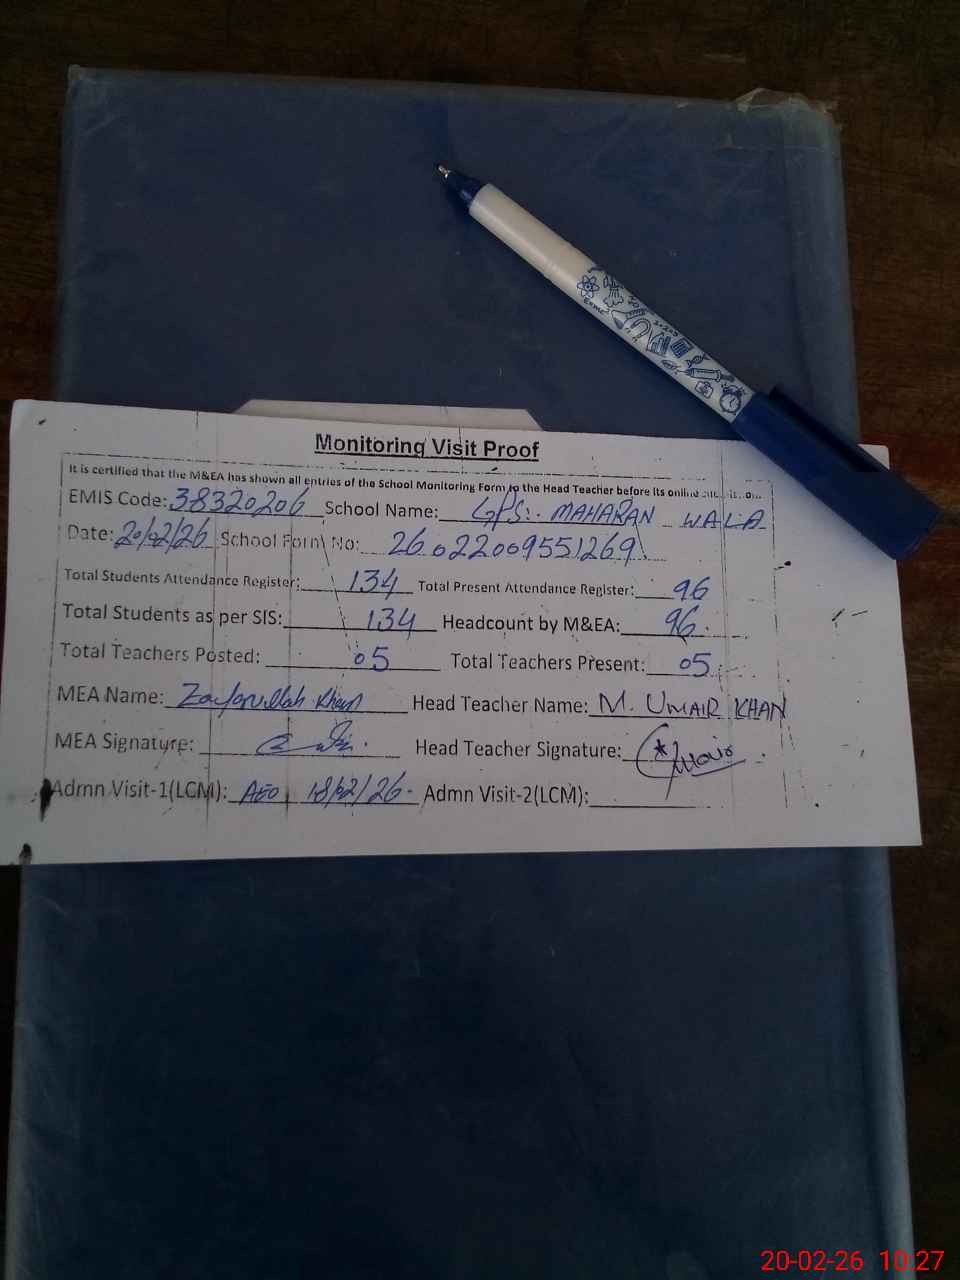 Monitoring Visit Proof
It is certified that the M&EA has shown all entries of the School Monitoring Form to the Head Teacher before its online
EMIS Code: 38320206 School Name: GPS. MAHARAN WALA
Date: 20/02/26 School Form No: 26022009551269
Total Students Attendance Register: 134 Total Present Attendance Register: 96
Total Students as per SIS: 134 Headcount by M&EA: 96.
Total Teachers Posted: 05 Total Teachers Present: 05
MEA Name: Zafarullah Khan Head Teacher Name: M. UMAIR KHAN
MEA Signature: Head Teacher Signature: Umair
Admn Visit-1(LCM): AEO 18/02/26. Admn Visit-2(LCM):
20-02-26 10:27